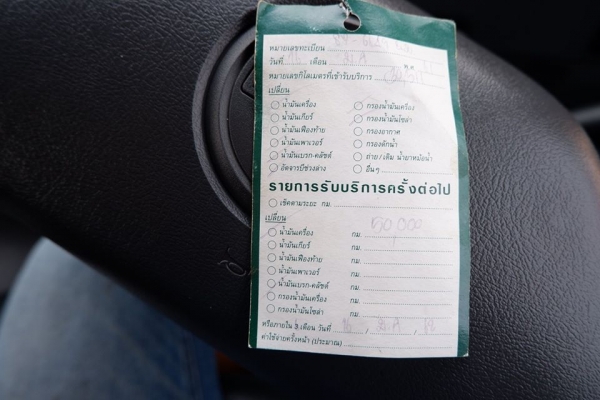 หมายเลขทะเบียน
วันที่ เดือน พ.ศ.
หมายเลขกิโลเมตรที่เข้ารับบริการ
เปลี่ยน
น้ำมันเครื่อง กรองน้ำมันเครื่อง
น้ำมันเกียร์ กรองน้ำมันโซล่า
น้ำมันเฟืองท้าย กรองอากาศ
น้ำมันเพาเวอร์ กรองดักน้ำ
น้ำมันเบรก-คลัชต์ ถ่าย/เติม น้ำยาหม้อน้ำ
อัดจารบีช่วงล่าง อื่นๆ
รายการรับบริการครั้งต่อไป
เช็คตามระยะ กม.
เปลี่ยน
น้ำมันเครื่อง กม. 50,000
น้ำมันเกียร์ กม.
น้ำมันเฟืองท้าย กม.
น้ำมันเพาเวอร์ กม.
น้ำมันเบรก-คลัชต์ กม.
กรองน้ำมันเครื่อง กม.
กรองน้ำมันโซล่า กม.
หรือภายใน เดือน วันที่
ค่าใช้จ่ายครั้งหน้า (ประมาณ)